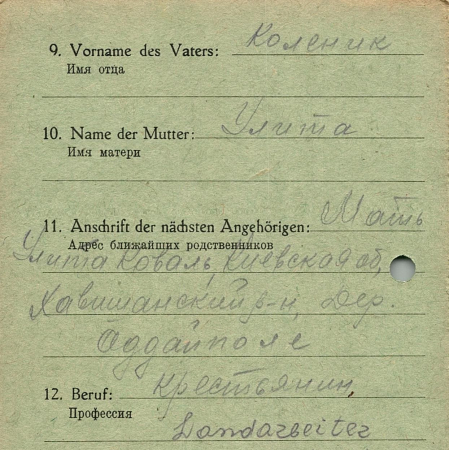 9. Vorname des Vaters: Коленик
Имя отца
10. Name der Mutter: Улита
Имя матери
11. Anschrift der nächsten Angehörigen: Мать
Адрес ближайших родственников
Улита Коваль, Киевская об,
Хавитанский р-н, Дер.
Оддайполе
12. Beruf: крестьянин,
Профессия
Landarbeiter